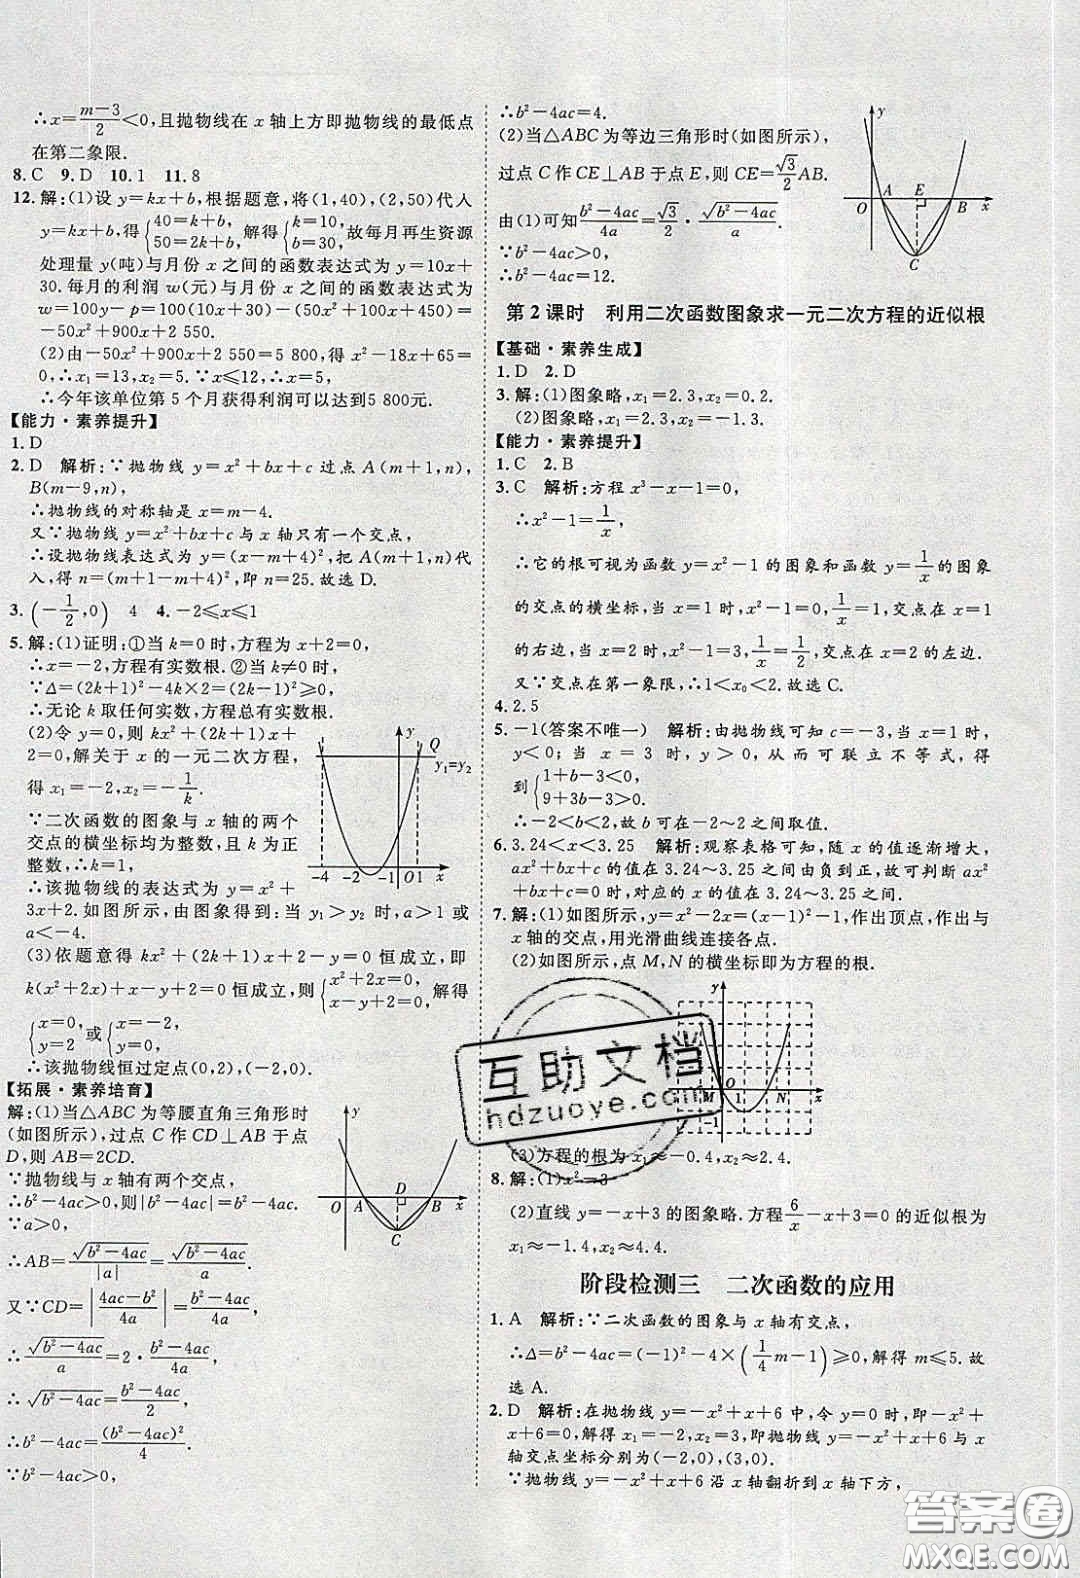 ∴x=(m-3)/2<0,且抛物线在 x 轴上方即抛物线的最低点
在第二象限.
8.C 9.D 10.1 11.8
12.解:(1)设 y=kx+b,根据题意,将(1,40),(2,50)代入
y=kx+b,得{40=k+b, 50=2k+b,解得{k=10, b=30,故每月再生资源
处理量 y(吨)与月份 x 之间的函数表达式为 y=10x+
30.每月的利润 w(元)与月份 x 之间的函数表达式为
w=100y-p=100(10x+30)-(50x²+100x+450)=
-50x²+900x+2 550;
(2)由-50x²+900x+2 550=5 800得 x²-18x+65=
0,∴x₁=13,x₂=5.∵x≤12,∴x=5,
∴今年该单位第 5 个月获得利润可以达到5 800元.
【能力·素养提升】
1.D
2.D 解析:∵抛物线 y=x²+bx+c 过点 A(m+1,n),
B(m-9,n),
∴抛物线的对称轴是 x=m-4.
又∵抛物线 y=x²+bx+c 与 x 轴只有一个交点,
∴设抛物线表达式为 y=(x-m+4)²,把 A(m+1,n)代
入,得 n=(m+1-m+4)²,即 n=25.故选 D.
3.(-1/2,0) 4 4.-2≤x≤1
5.解:(1)证明:①当 k=0 时,方程为 x+2=0,
∴x=-2,方程有实数根.②当 k≠0 时,
∵Δ=(2k+1)²-4k×2=(2k-1)²≥0,
∴无论 k 取任何实数,方程总有实数根.
(2)令 y=0,则 kx²+(2k+1)x+
2=0,解关于 x 的一元二次方程,
得 x₁=-2,x₂=-1/k.
∵二次函数的图象与 x 轴的两个
交点的横坐标均为整数,且 k 为正
整数,∴k=1,
∴该抛物线的表达式为 y=x²+
3x+2.如图所示,由图象得到:当 y₁>y₂ 时,a>1 或
a<-4.
y Q y₁=y₂
-4 -2 -1 O 1 x
(3)依题意得 kx²+(2k+1)x+2-y=0 恒成立,即
k(x²+2x)+x-y+2=0 恒成立,则{x²+2x=0, x-y+2=0,解得
{x=0, y=2 或{x=-2, y=0.
∴该抛物线恒过定点(0,2),(-2,0).
【拓展·素养培育】
解:(1)当△ABC 为等腰直角三角形时
(如图所示),过点 C 作 CD⊥AB 于点
D,则 AB=2CD.
∵抛物线与 x 轴有两个交点,
∴b²-4ac>0,则|b²-4ac|=b²-4ac.
∵a>0,
y D O A B x C
∴AB=√(b²-4ac)/|a|=√(b²-4ac)/a.
又∵CD=|(4ac-b²)/4a|=(b²-4ac)/4a,
∴√(b²-4ac)/a=2·(b²-4ac)/4a,
∴√(b²-4ac)=(b²-4ac)/2,
∴b²-4ac=(b²-4ac)²/4.
∵b²-4ac>0,
∴b²-4ac=4.
(2)当△ABC 为等边三角形时(如图所示),
过点 C 作 CE⊥AB 于点 E,则 CE=√3/2 AB.
由(1)可知(b²-4ac)/4a=√3/2·√(b²-4ac)/a.
∵b²-4ac>0,
∴b²-4ac=12.
y A E O B x C
第 2 课时 利用二次函数图象求一元二次方程的近似根
【基础·素养生成】
1.D 2.D
3.解:(1)图象略,x₁=2.3,x₂=0.2.
(2)图象略,x₁=2.3,x₂=-1.3.
【能力·素养提升】
1.C 2.B
3.C 解析:方程 x³-x-1=0,
∴x²-1=1/x,
∴它的根可视为函数 y=x²-1 的图象和函数 y=1/x 的图象
的交点的横坐标,当 x=1 时,y=x²-1=0,y=1/x=1,交点在 x=1
的右边,当 x=2 时,y=x²-1=3,1/x=1/2,交点在 x=2 的左边.
又∵交点在第一象限,∴1<x₀<2.故选 C.
4.2.5
5.-1(答案不唯一) 解析:由抛物线可知 c=-3,当 x=1 时,
y<0;当 x=3 时,y>0,从而可联立不等式,得
到{1+b-3<0, 9+3b-3>0,
∴-2<b<2,故 b 可在-2~2 之间取值.
6.3.24<x<3.25 解析:观察表格可知,随 x 的值逐渐增大,
ax²+bx+c 的值在 3.24~3.25 之间由负到正,故可判断ax²+
bx+c=0 时,对应的 x 的值在 3.24~3.25 之间.
7.解:(1)如图所示,y=x²-2x=(x-1)²-1,作出顶点,作出与
x 轴的交点,用光滑曲线连接各点.
(2)如图所示,点 M,N 的横坐标即为方程的根.
y M O 1 N x -1
(3)方程的根为 x₁≈-0.4,x₂≈2.4.
8.解:(1)x²-3
(2)直线 y=-x+3 的图象略.方程6/x-x+3=0 的近似根为
x₁≈-1.4,x₂≈4.4.
阶段检测三 二次函数的应用
1.A 解析:∵二次函数的图象与 x 轴有交点,
∴Δ=b²-4ac=(-1)²-4×(1/4 m-1)≥0,解得 m≤5.故
选 A.
2.D 解析:在抛物线 y=-x²+x+6 中,令 y=0 时,即-x²+
x+6=0,解得 x₁=-2,x₂=3,即抛物线 y=-x²+x+6 与 x
轴交点坐标分别为(-2,0),(3,0).
∵抛物线 y=-x²+x+6 沿 x 轴翻折到 x 轴下方,
互助文档
hdzuoye.com
答案圈
MXQE.COM